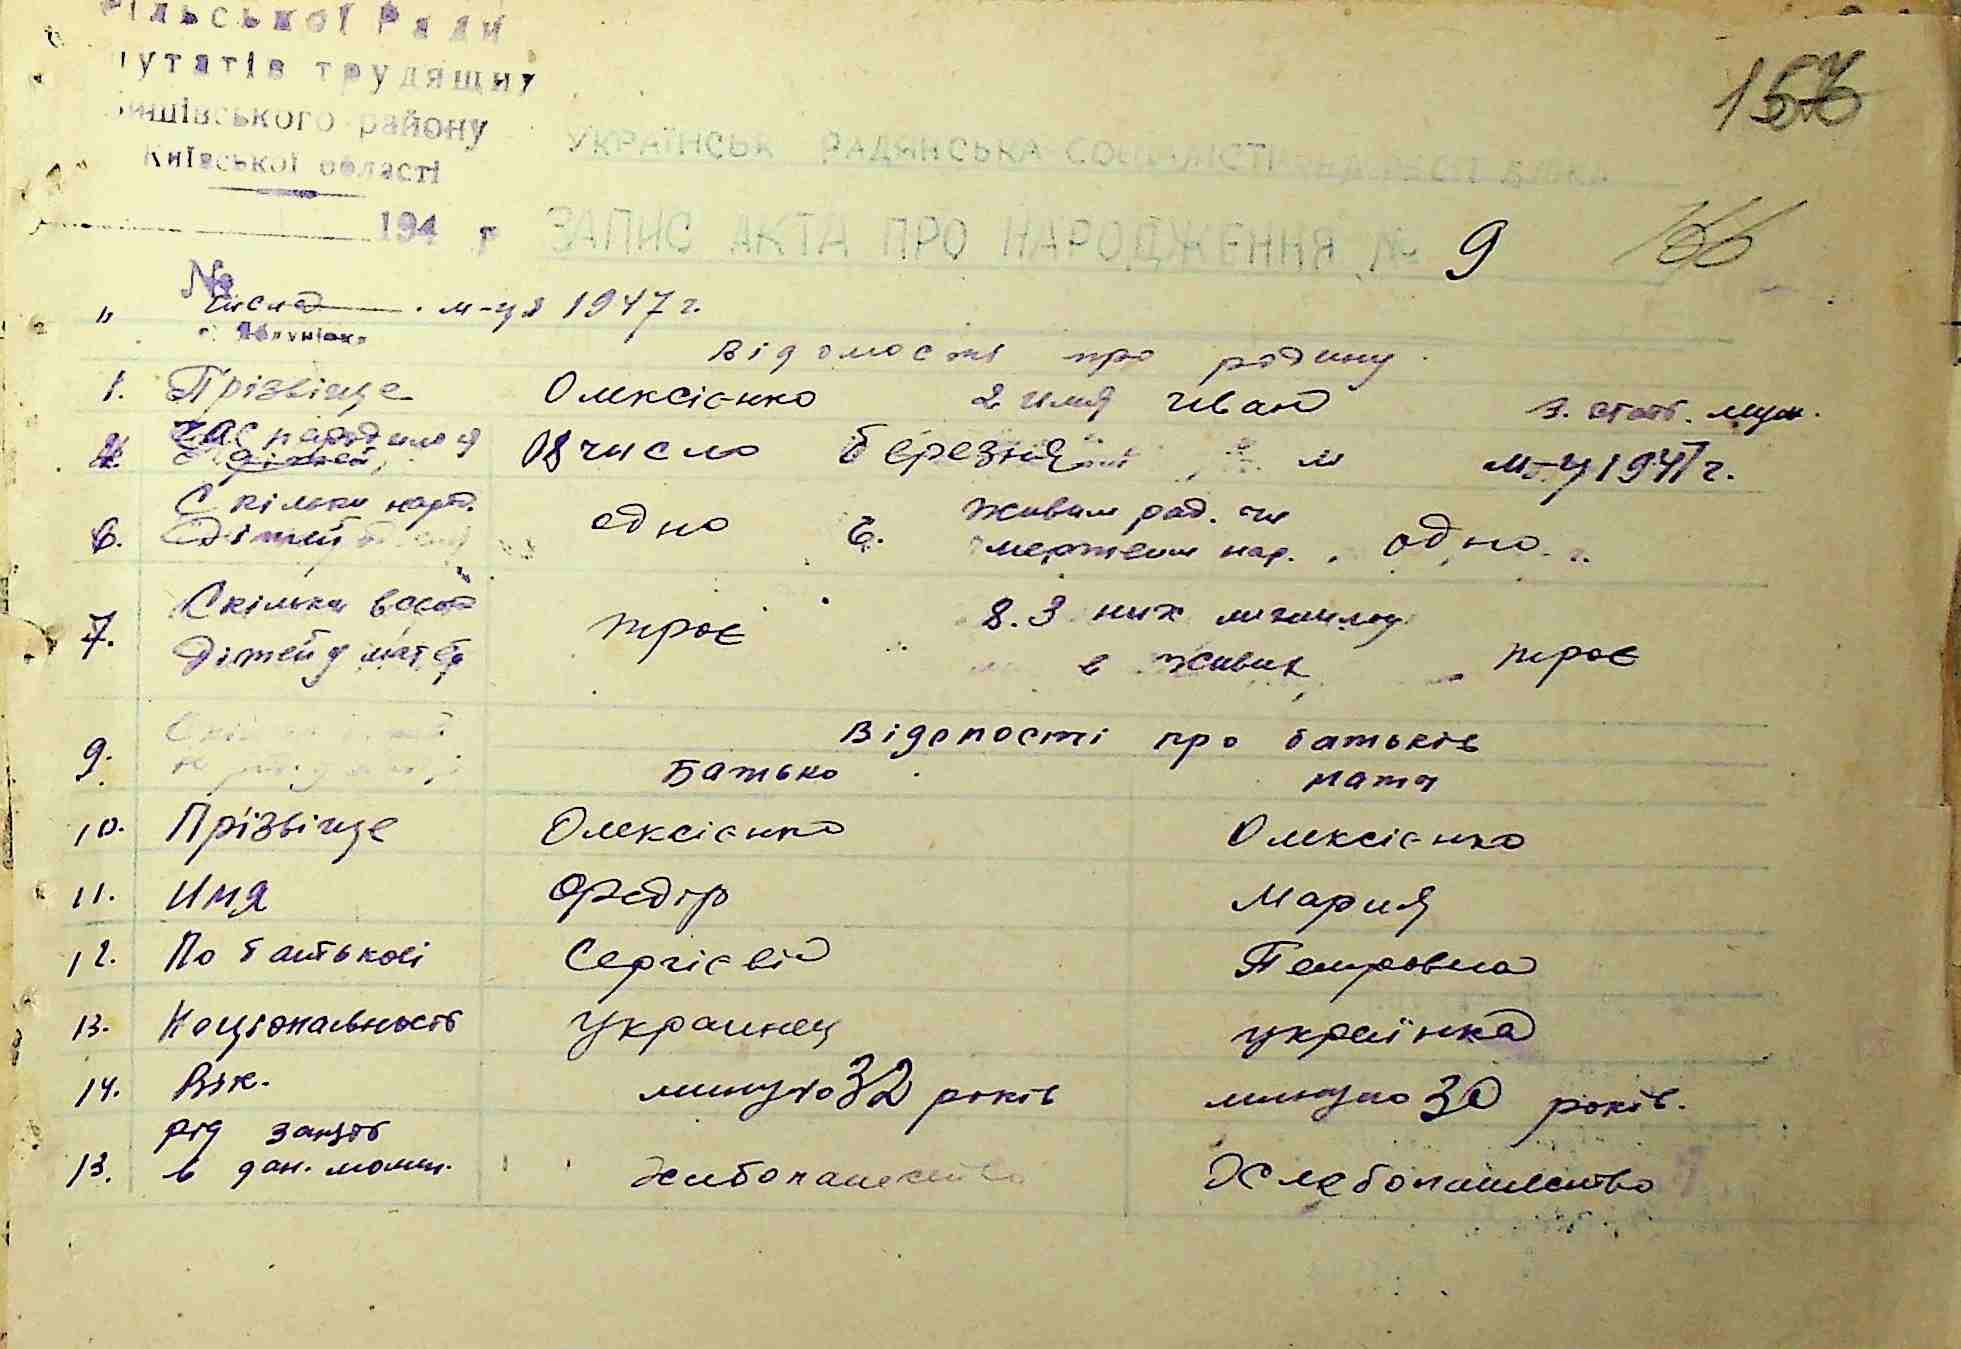 Сільської Ради
путатів трудящих
Київської області
194 р
157
УКРАЇНСЬКА РАДЯНСЬКА СОЦІАЛІСТИЧНА РЕСПУБЛІКА
ЗАПИС АКТА ПРО НАРОДЖЕННЯ № 9
166
№
" числа . м-ця 1947 г.
Відомості про родину
1. Прізвіще Олексієнко 2 имя Иван 3. стать. муж.
4. Час народився 08 число березня м-ця 1947 г.
Скільки нард.
6. Дітей одно 6. Живим рад. чи
мертвим нар. одно
7. Скільки всего троє 8. З них
Дітей у матер в живих троє
9. Відомості про батьків
Батько Мати
10. Прізвіще Олексієнко Олексієнко
11. Имя Федір Мария
12. По батькові Сергієвіч Петровна
13. Національность Украинец українка
14. Вік. минуло 32 років минуло 30 років.
рід занять
13. в дан. момен. хлібопашество Хлебопашество